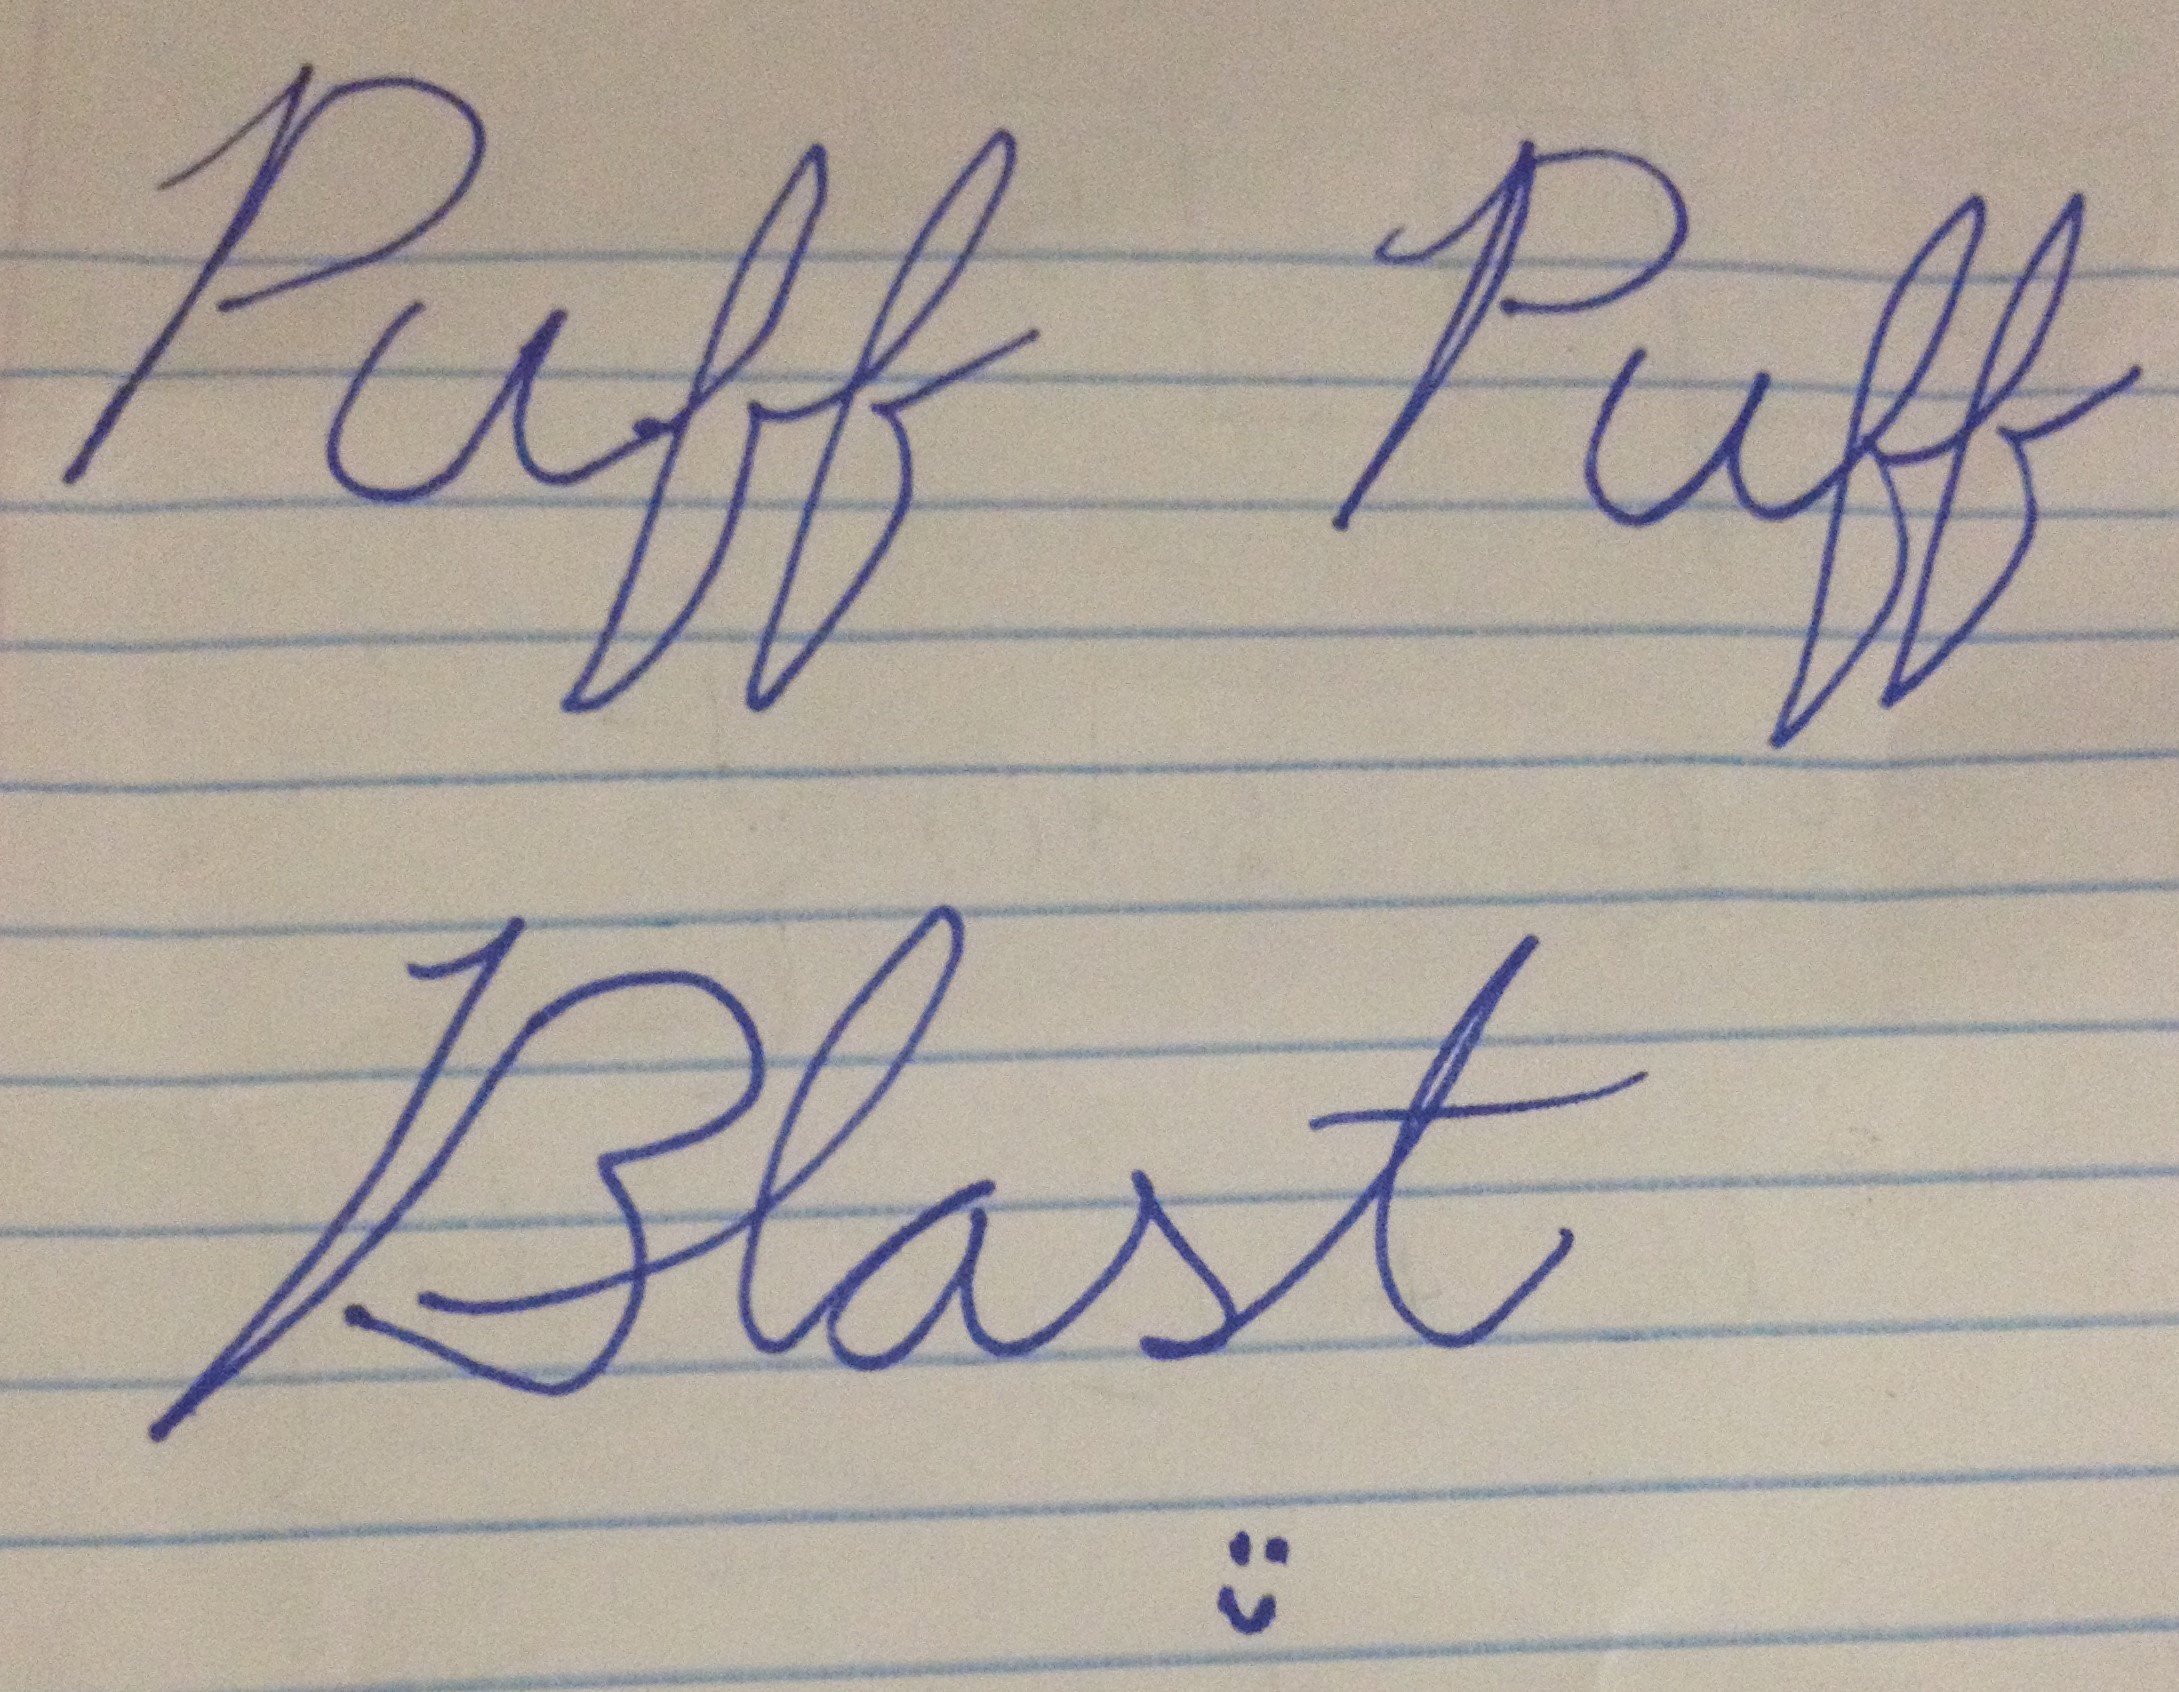 Puff Puff
Blast